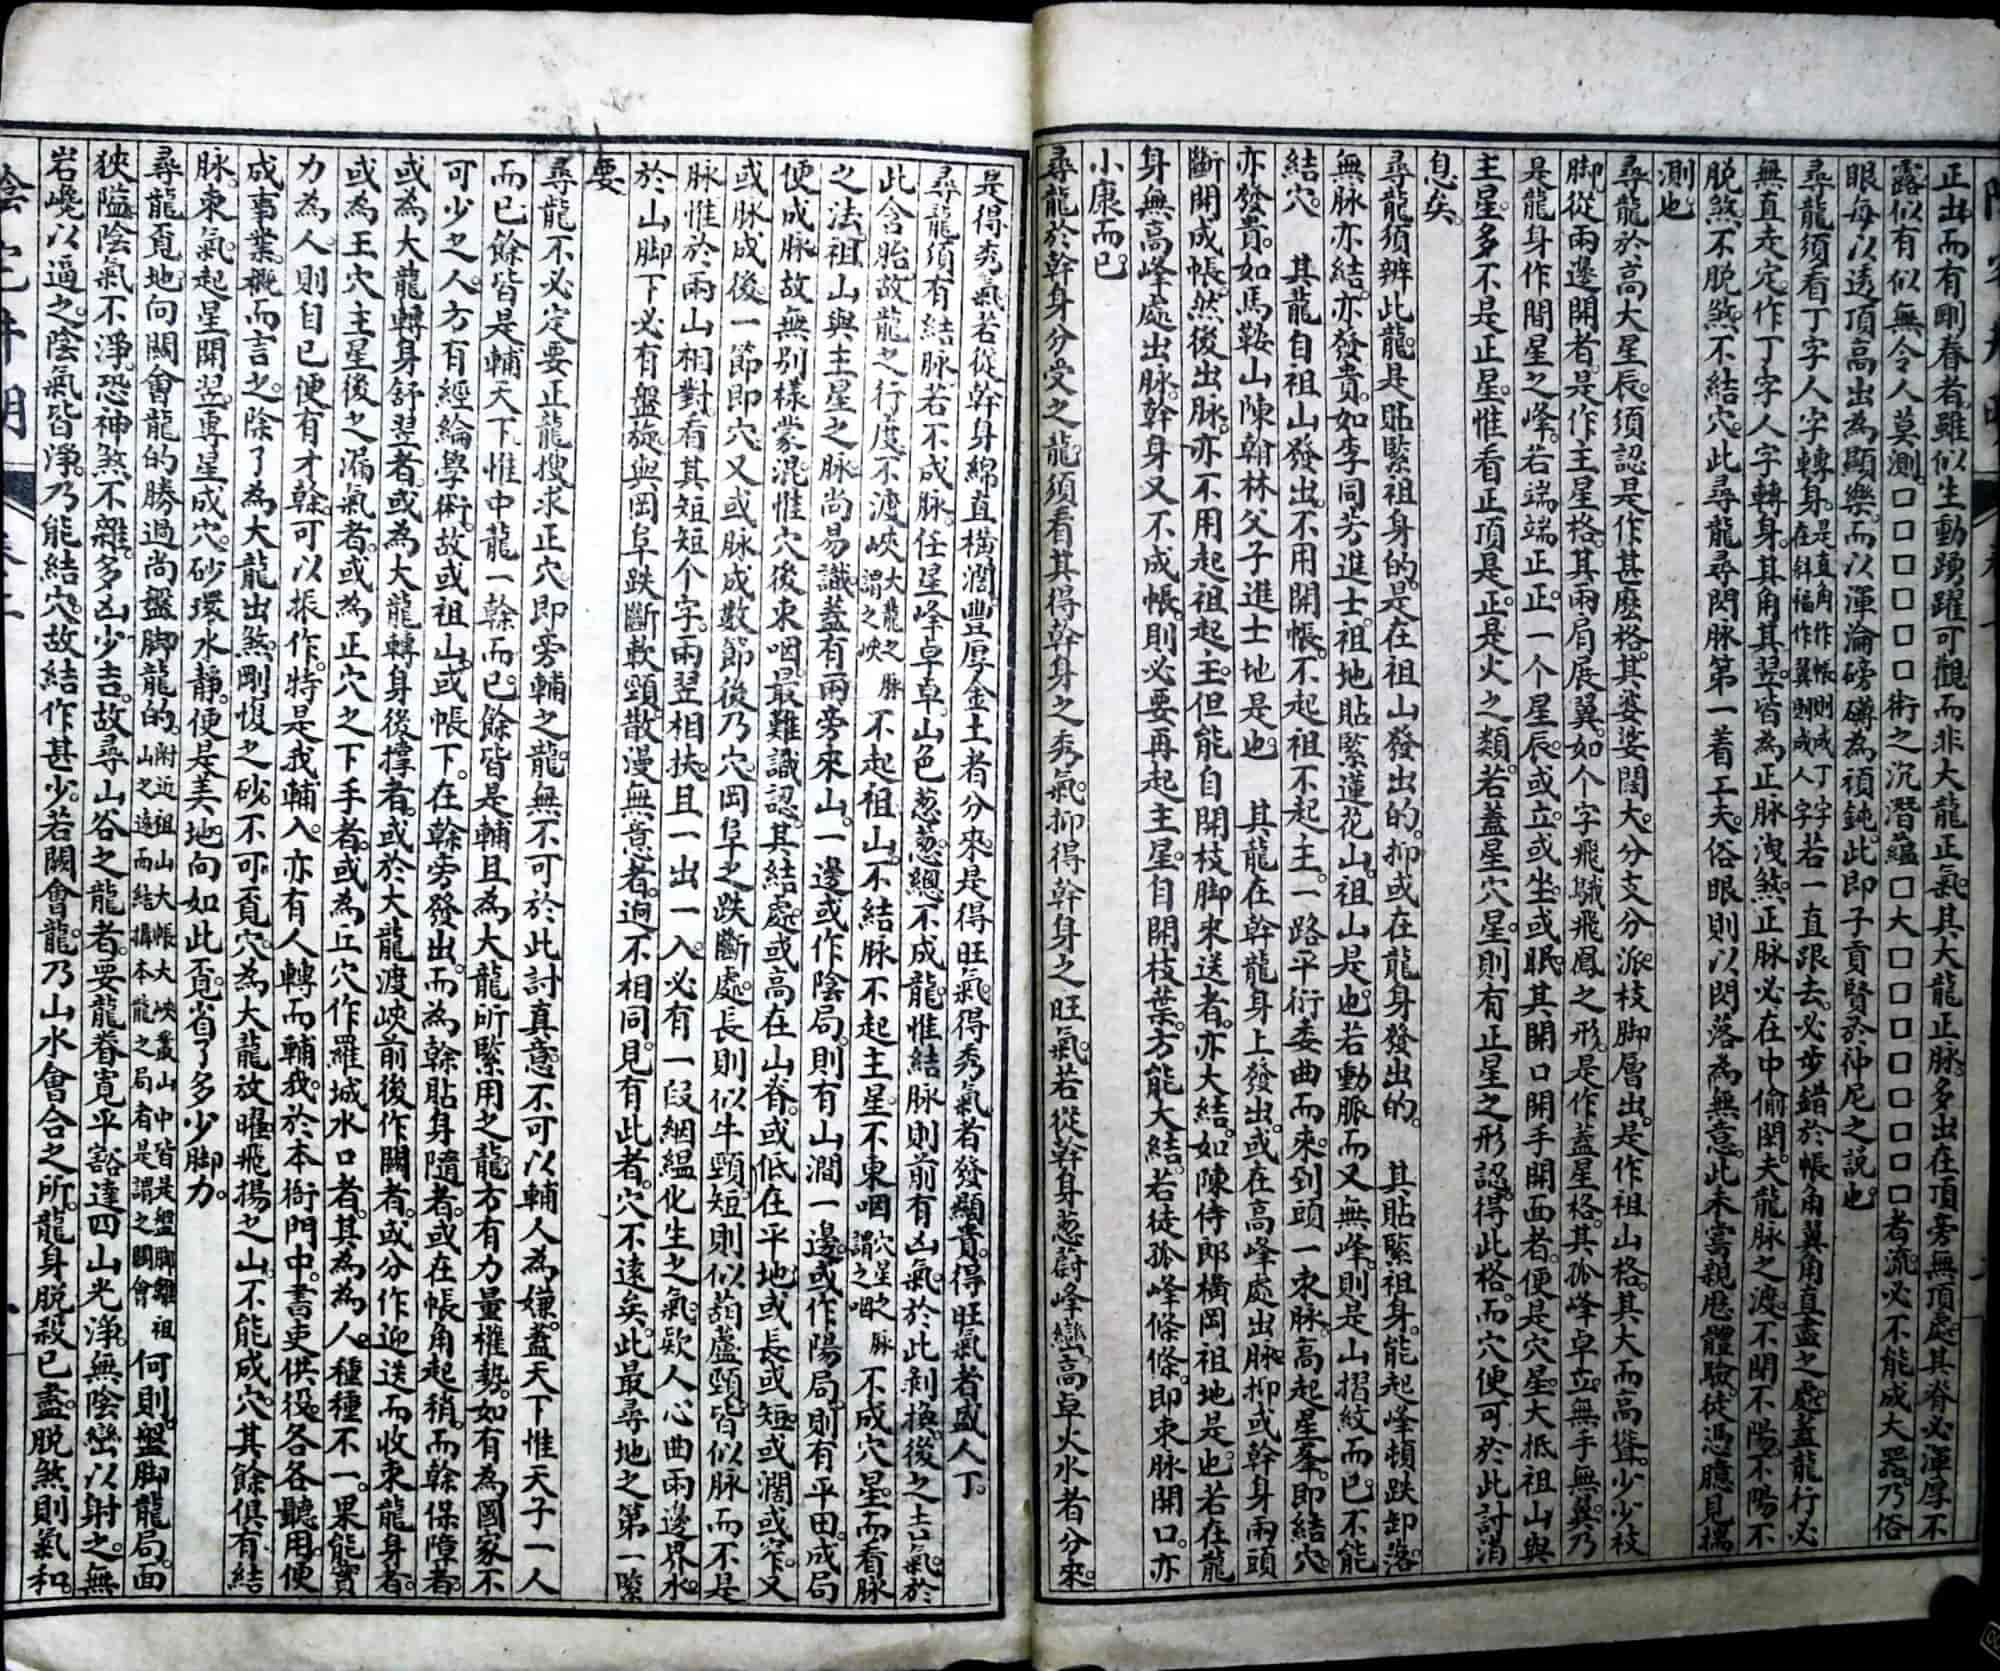 正出而有剛脊者雖似生動踴躍可觀而非大龍正氣其大龍正脉多出在頂旁無頂處其脊必渾厚不
露似有似無令人莫測□□□□□□術之沉潛蘊□大□□□□□□□者流必不能成大器乃俗
眼每以透頂高出為顯樂而以渾淪磅礡為頑鈍此即子貢賢於仲尼之說也
尋龍須看丁字人字轉身是直角作帳則成丁字在斜福作翼則成人字若一直跟去必步錯於帳角翼角直盡之處蓋龍行必
無直走定作丁字人字轉身其角其翌皆為正脉洩煞正脉必在中偷閃夫龍脉之渡不閉不陽不陽不
脱煞不脱煞不結穴此尋龍尋閃脉第一着工夫俗眼則以閃落為無意此未嘗親歷體驗徒憑臆見揣
測也
尋龍於高大星辰須認是作甚麽格其婆娑闊大分支分派枝脚層出是作祖山格其大而高聳少少枝
脚從兩邊開者是作主星格其兩肩展翼如个字飛鵝飛鳳之形是作蓋星格其孤峰卓立無手無翼乃
是龍身作間星之峰若端端正正一个星辰或立或坐或眠其開口開手開面者便是穴星大抵祖山與
主星多不是正星惟看正頂是正是火之類若蓋星穴星則有正星之形認得此格而穴便可於此討消
息矣
尋龍須辨此龍是貼緊祖身的是在祖山發出的抑或在龍身發出的　其貼緊祖身能起峰頓跌卸落
無脉亦結亦發貴如李同芳進士祖地貼緊蓮花山祖山是也若動脈而又無峰則是山摺紋而已不能
結穴　其龍自祖山發出不用開帳不起祖不起主一路平衍委曲而來到頭一束脉高起星峯即結穴
亦發貴如馬鞍山陳翰林父子進士地是也　其龍在幹龍身上發出或在高峰處出脉抑或幹身兩頭
斷開成帳然後出脉亦不用起祖起主但能自開枝脚來送者亦大結如陳侍郎橫岡祖地是也若在龍
身無高峰處出脉幹身又不成帳則必要再起主星自開枝葉方能大結若徒孤峰條條即束脉開口亦
小康而已
尋龍於幹身分受之龍須看其得幹身之秀氣抑得幹身之旺氣若從幹身葱蔚峰巒高卓火水者分來
是得秀氣若從幹身綿直橫濶豐厚金土者分來是得旺氣得秀氣者發顯貴得旺氣者盛人丁
尋龍須有結脉若不成脉任星峰卓卓山色葱葱總不成龍惟結脉則前有凶氣於此剝換後之吉氣於
此含胎故龍之行度不渡峽大龍之脉謂之峽不起祖山不結脉不起主星不束咽穴星之脉謂之咽不成穴星而看脉
之法祖山與主星之脉尚易識蓋有兩旁來山一邊或作陰局則有山澗一邊或作陽局則有平田成局
便成脉故無別樣蒙混惟穴後束咽最難識認其結處或高在山脊或低在平地或長或短或濶或窄又
或脉成後一節即穴又或脉成數節後乃穴岡阜之跌斷處長則似牛頸短則似葫蘆頸皆似脉而不是
脉惟於兩山相對看其短短个字兩翌相扶且一出一入必有一段絪緼化生之氣欵人心曲兩邊界水
於山脚下必有盤旋與岡阜跌斷軟頸散漫無意者迥不相同見有此者穴不遠矣此最尋地之第一緊
要
尋龍不必定要正龍搜求正穴即旁輔之龍無不可於此討真意不可以輔人為嫌蓋天下惟天子一人
而已餘皆是輔天下惟中龍一榦而已餘皆是輔且為大龍所緊用之龍方有力量權勢如有為國家不
可少之人方有經綸學術故或祖山或帳下在榦旁發出而為榦貼身隨者或在帳角起稍而榦保障者
或為大龍轉身舒翌者或為大龍轉身後撐者或於大龍渡峽前後作關者或分作迎送而收束龍身者
或為王穴主星後之漏氣者或為正穴之下手者或為丘穴作羅城水口者其為為人種種不一果能實
力為人則自己便有才榦可以振作特是我輔入亦有人轉而輔我於本衙門中書吏供役各各聽用便
成事業概而言之除了為大龍出煞剛愎之砂不可覔穴為大龍放曜飛揚之山不能成穴其餘俱有結
脉束氣起星開翌專星成穴砂環水靜便是美地向如此覔省了多少脚力
尋龍覔地向關會龍的勝過尚盤脚龍的附近祖山大帳大峽叢山中皆是盤脚離祖山之遠而結攝本龍之局者是謂之關會何則盤脚龍局面
狹隘陰氣不淨恐神煞不雜多凶少吉故尋山谷之龍者要龍脊寬平豁達四山光淨無陰巒以射之無
岩巉以逼之陰氣皆淨乃能結穴故結作甚少若關會龍乃山水會合之所龍身脱殺已盡脱煞則氣和